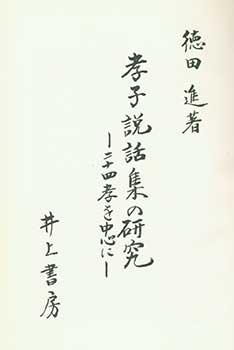 徳田 進著
孝子説話集の研究
—二十四孝を中心に—
井上書房